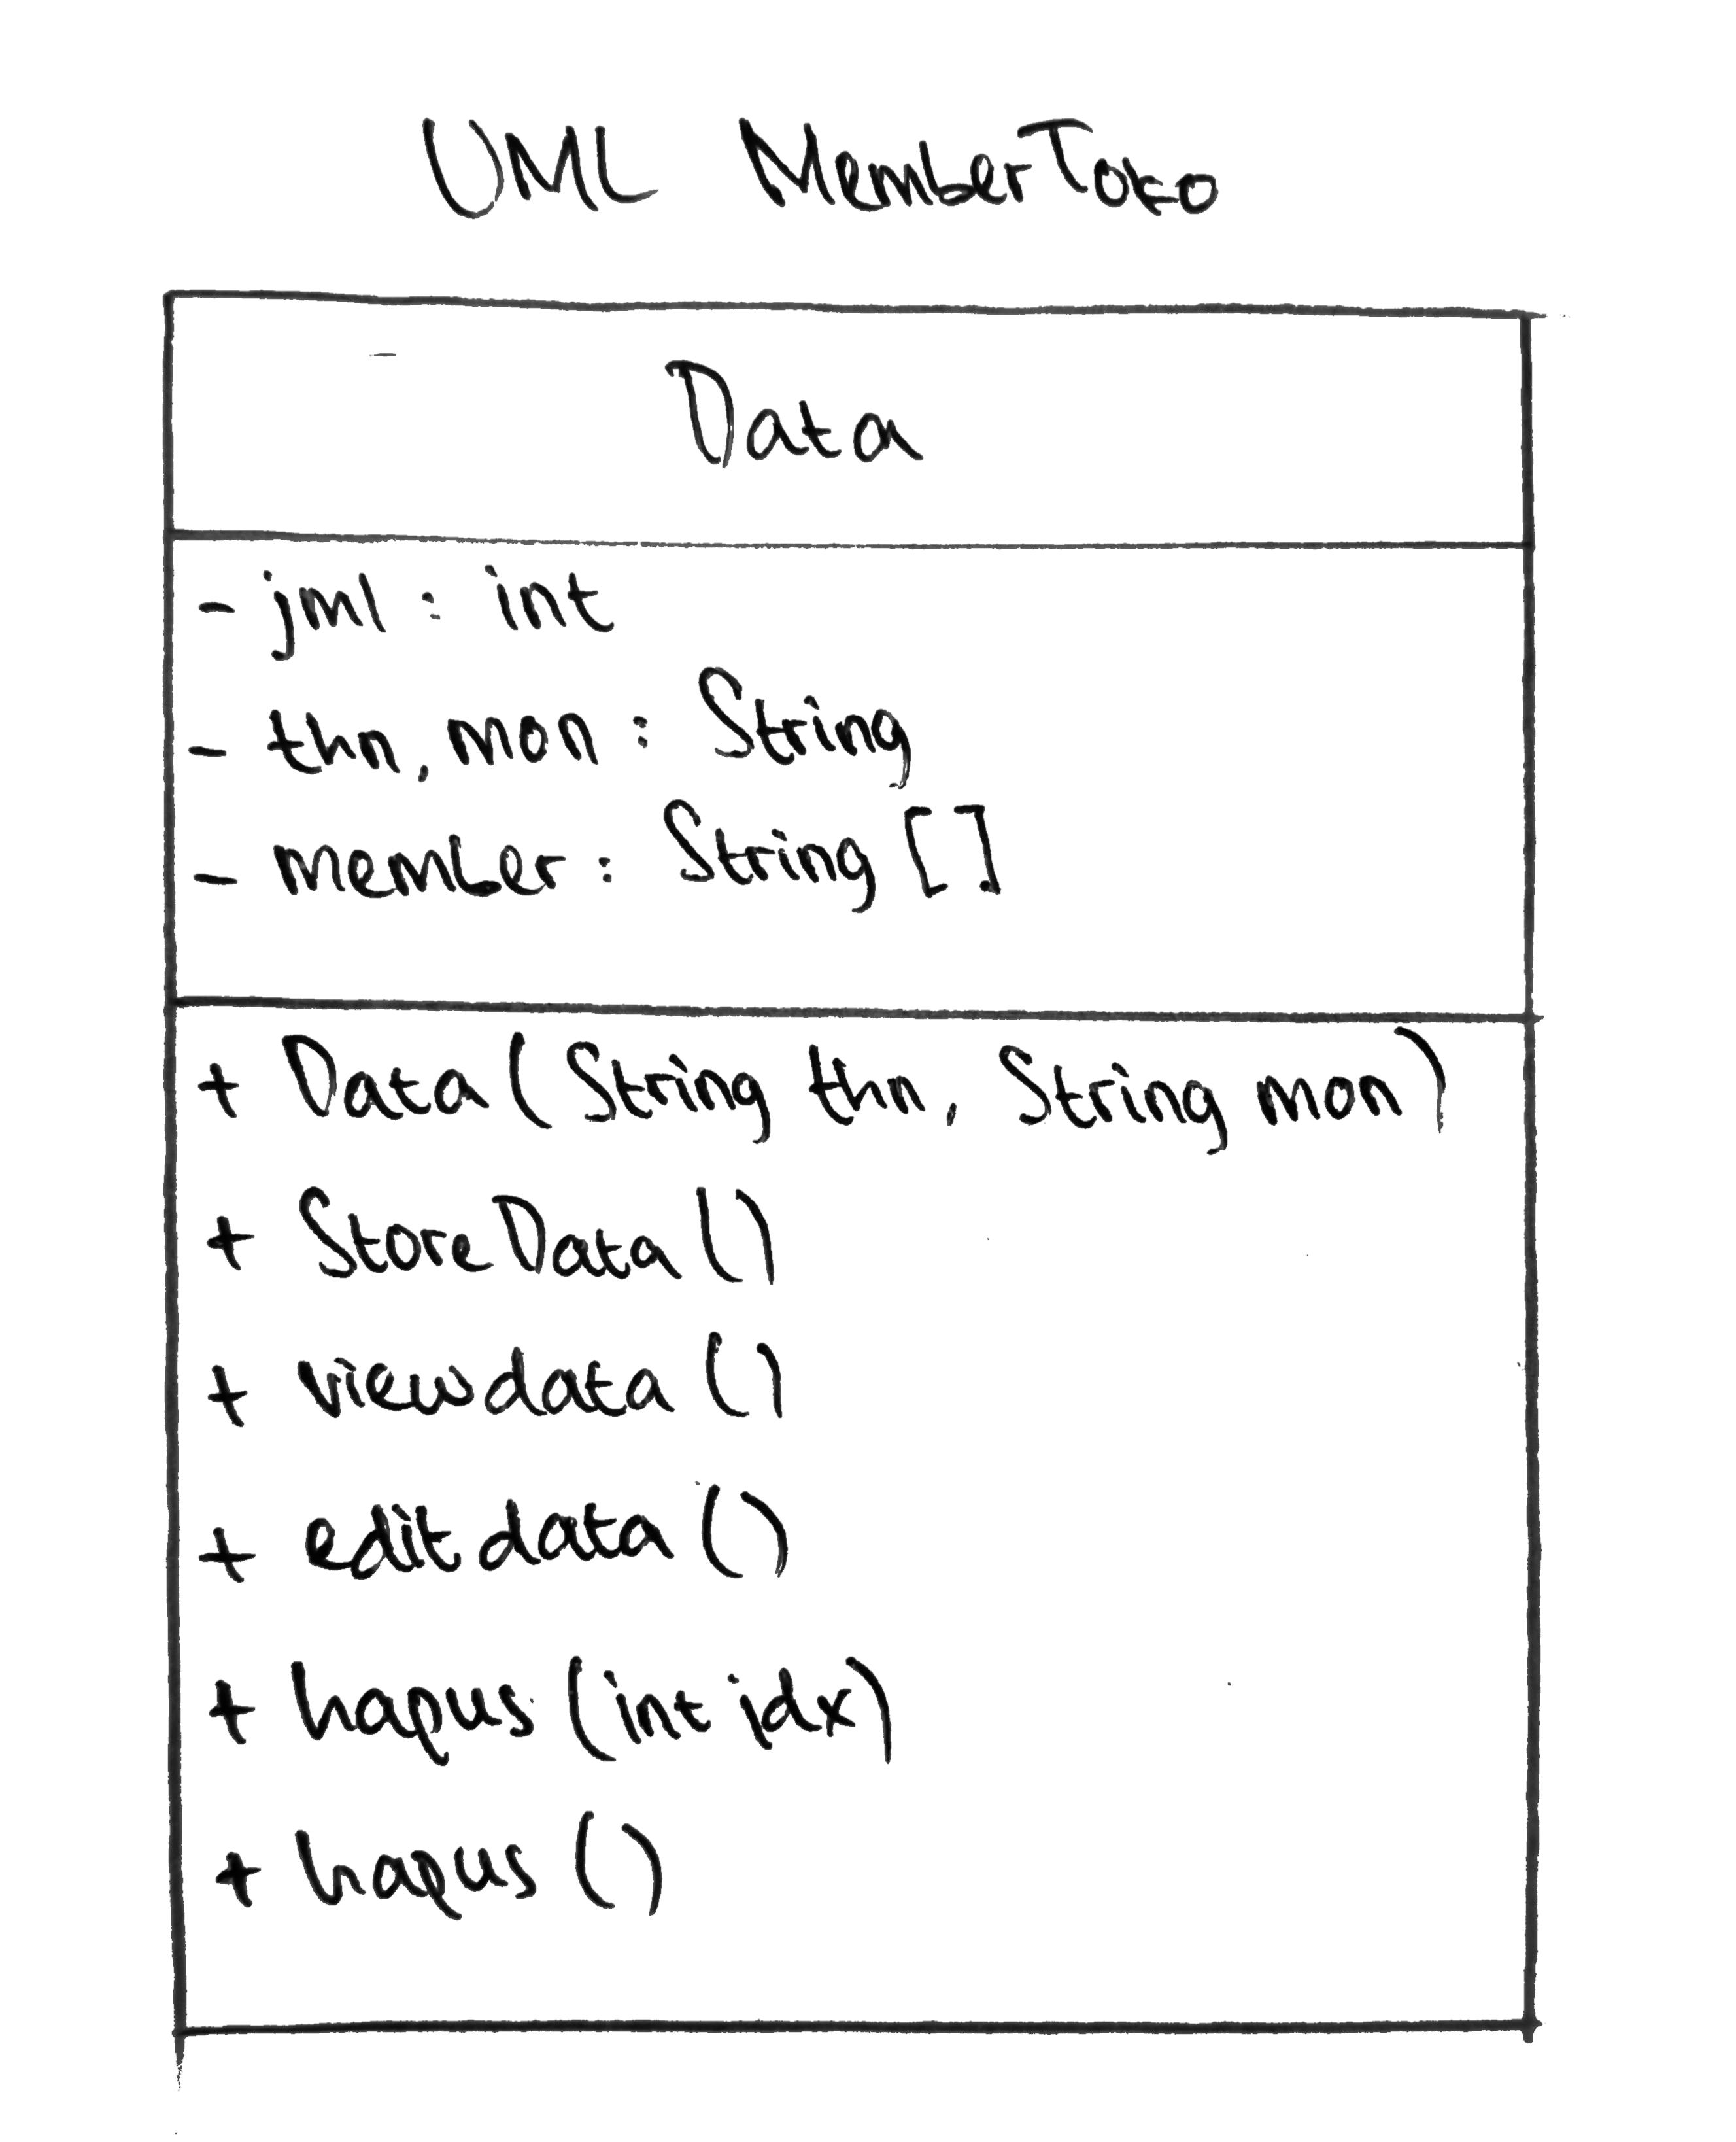 UML MemberToko
Data
- jml : int
- thn, mon : String
- member : String []
+ Data (String thn, String mon)
+ StoreData ()
+ viewdata ()
+ editdata ()
+ hapus (int idx)
+ hapus ()